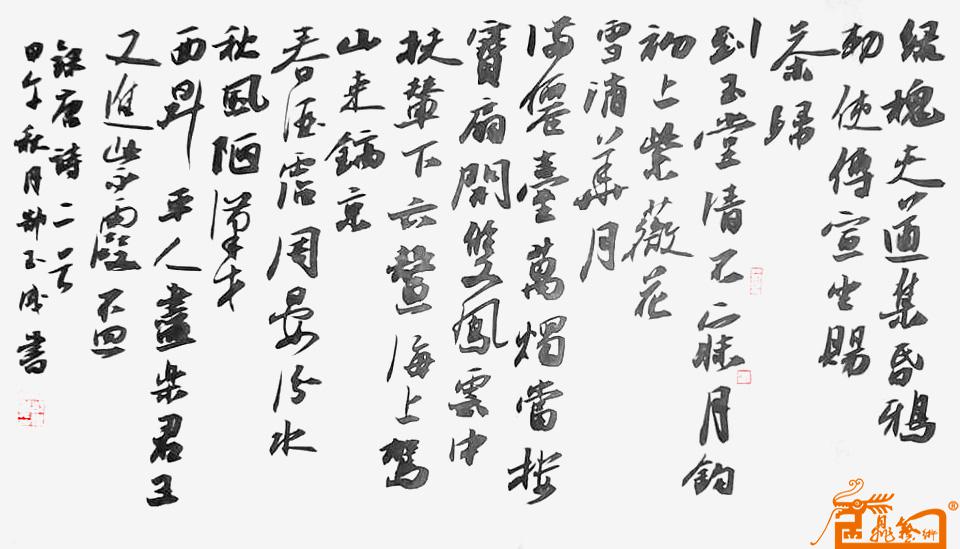 緑槐夾道集昏鴉
勅使傳宣坐賜
茶歸
到玉堂清不寐月鈎
初上紫薇花
雪消華月
滿僊臺萬燭當楼
寶扇開雙鳳雲中
扶輦下六鰲海上駕
山来鎬京
春酒霑周宴汾水
秋風陋漢才
一曲昇平人盡樂君王
又進紫霞杯
錄唐詩二首
甲午秋月玉書